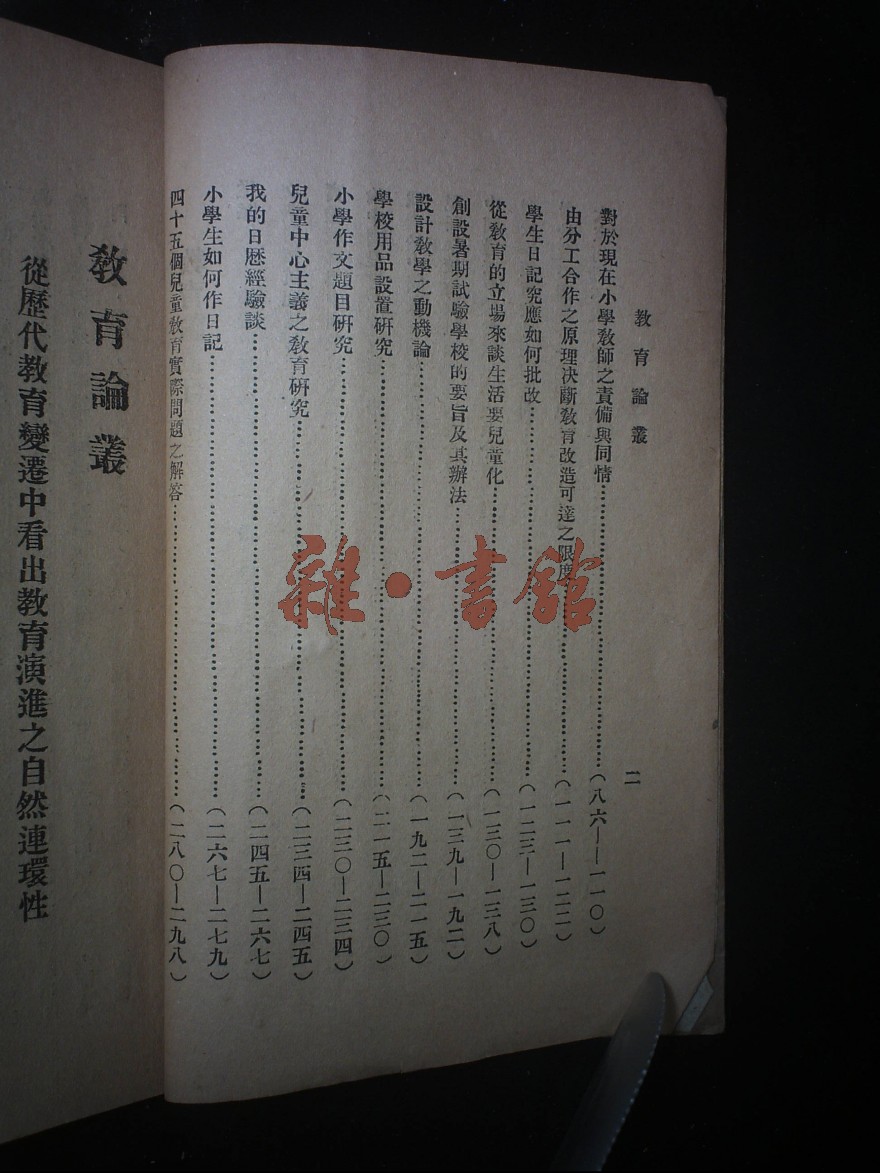 教育論叢
二
對於現在小學教師之責備與同情……(八六——一一〇)
由分工合作之原理決斷教育改造可達之限度……(一一一—一二二)
學生日記究應如何批改……(一二三—一三〇)
從教育的立場來談生活要兒童化……(一三〇—一三八)
創設暑期試驗學校的要旨及其辦法……(一三九—一九二)
設計教學之動機論……(一九二—二一五)
學校用品設置研究……(二一五—二三〇)
小學作文題目研究……(二三〇—二三四)
兒童中心主義之教育研究……(二三四—二四五)
我的日歷經驗談……(二四五—二六七)
小學生如何作日記……(二六七—二七九)
四十五個兒童教育實際問題之解答……(二八〇—二九八)
教育論叢
從歷代教育變遷中看出教育演進之自然連環性
雜·書館